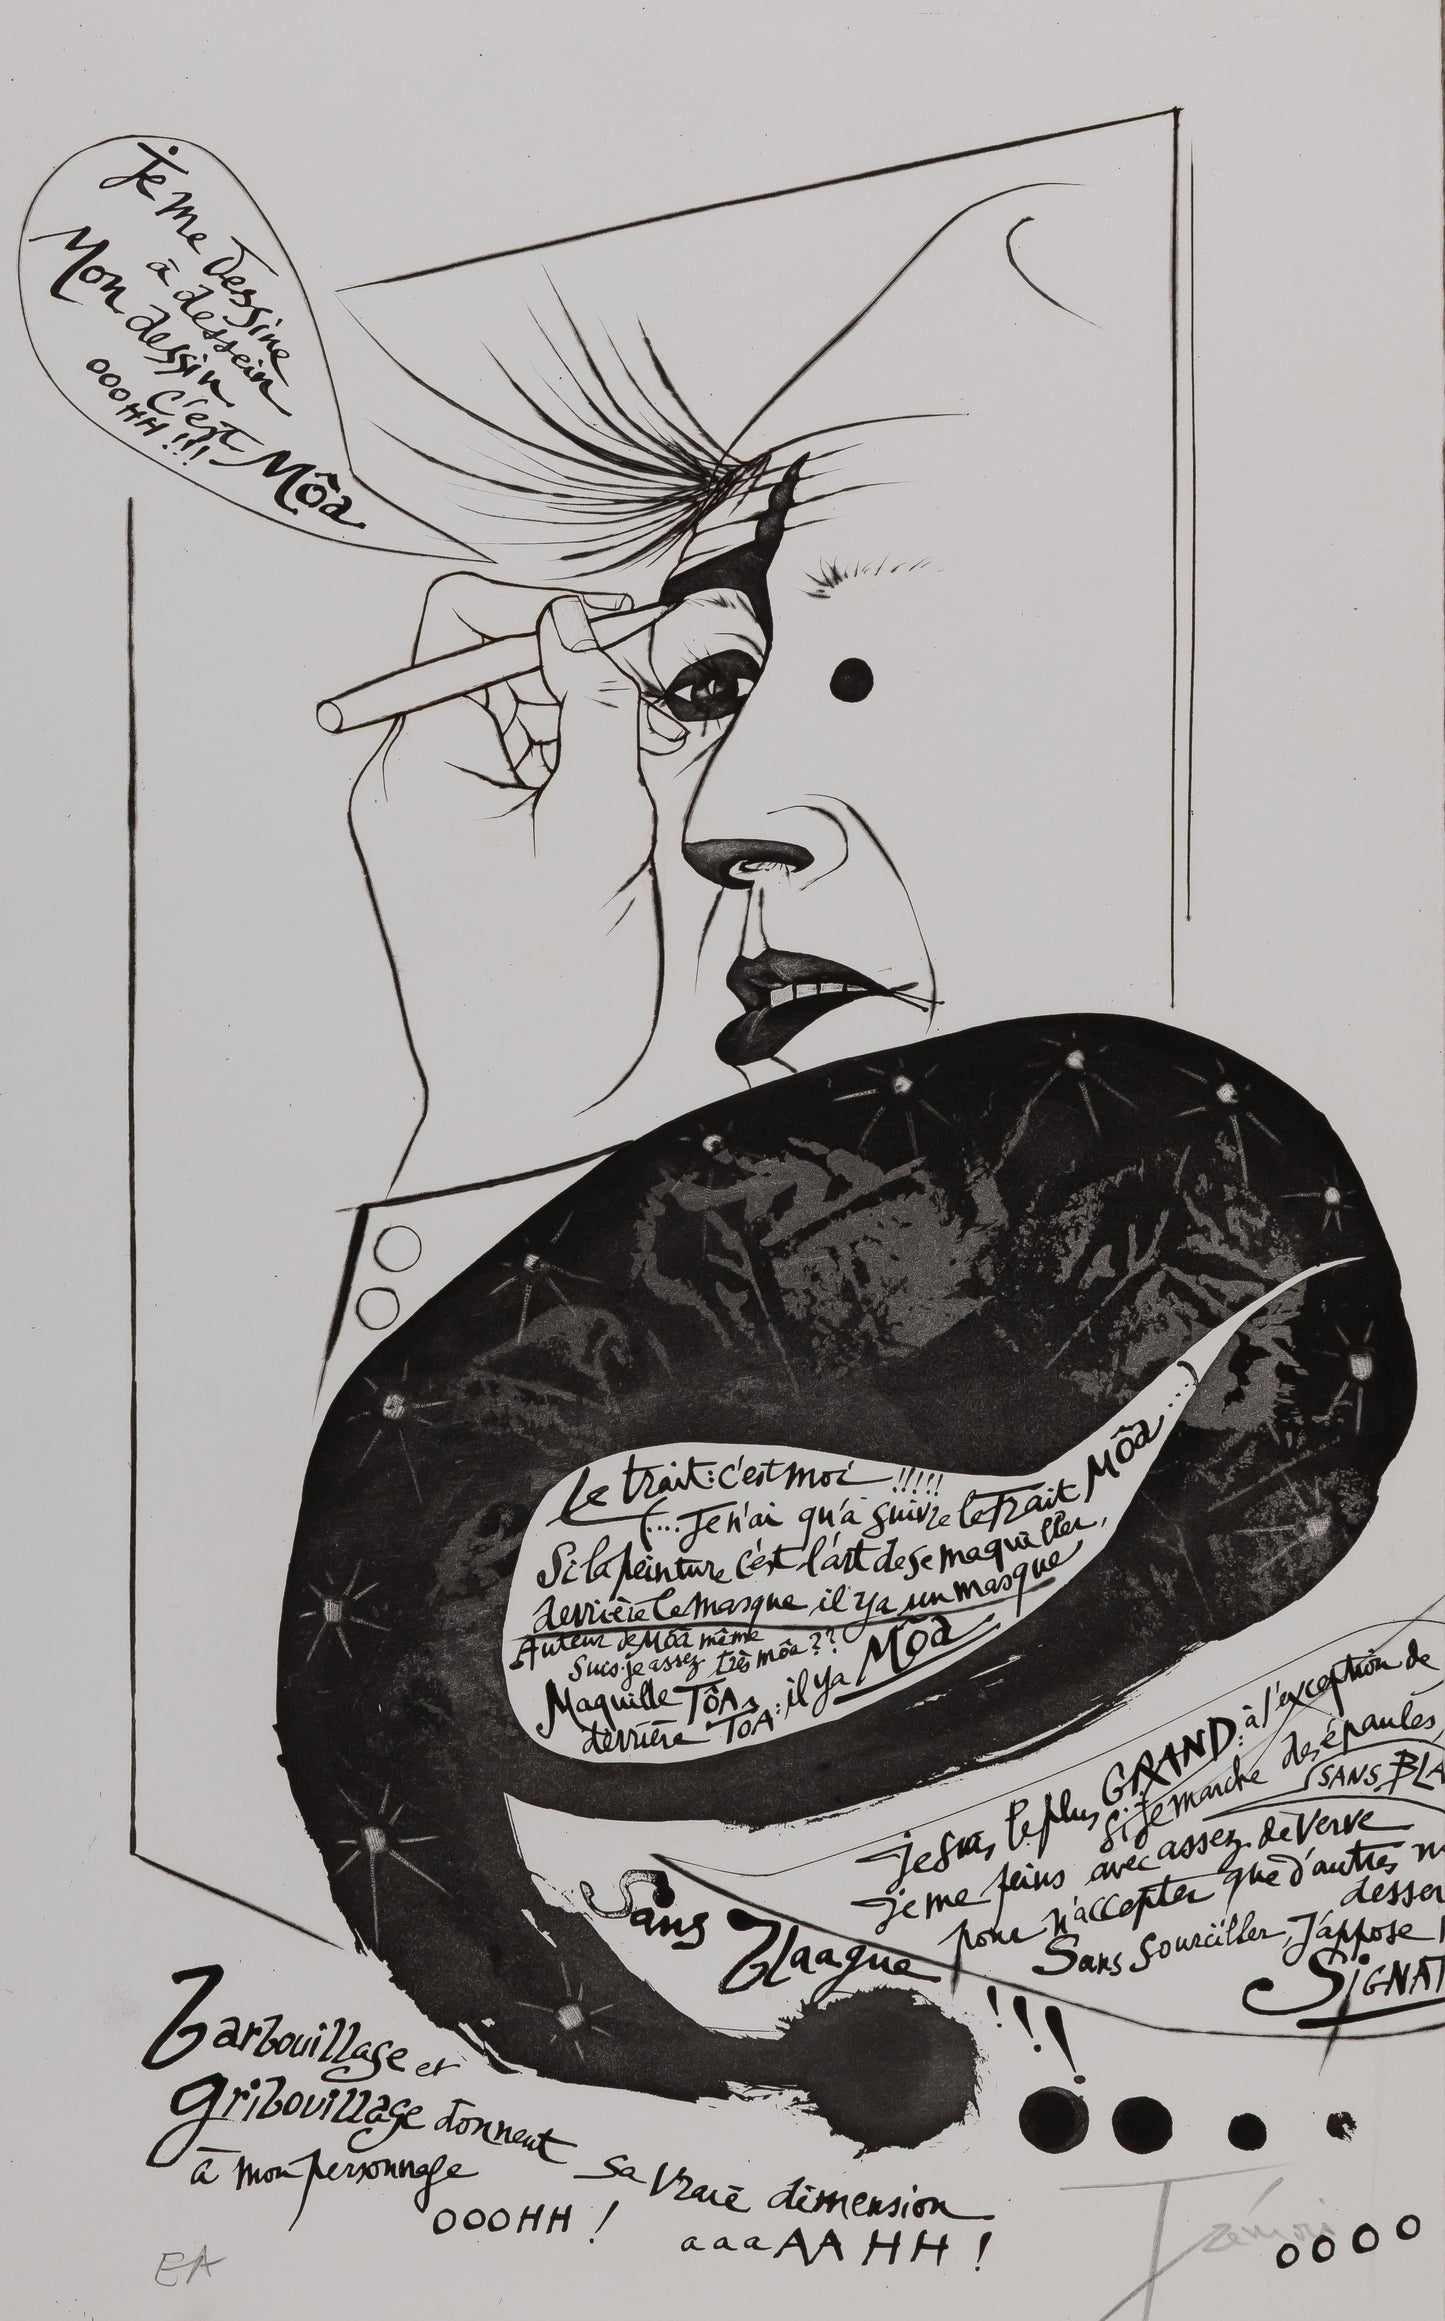 Je me Dessine
à dessein
Mon dessin
c'est Môa
OOOHH !!!
Le trait: c'est moi !!!!!
(.... Je n'ai qu'à suivre le Trait Môa ....)
Si la peinture c'est l'art de se maquiller,
derrière le masque il y a un masque
Auteur de Môa même
suis-je assez très môa ??
Maquille TÔA,
derrière TOA: il y a Môa
je suis le plus GRAND: à l'exception de
si je marche des épaules,
SANS BLA
je me peins avec assez de Verve
pour n'accepter que d'autres
desser
Sans sourciller, J'appose
SIGNAT
Sans blaague !!!
barbouillage et
gribouillage donnent
à mon personnage
sa vraie dimension
OOOHH !
aaaAAHH !
EA
Trémois